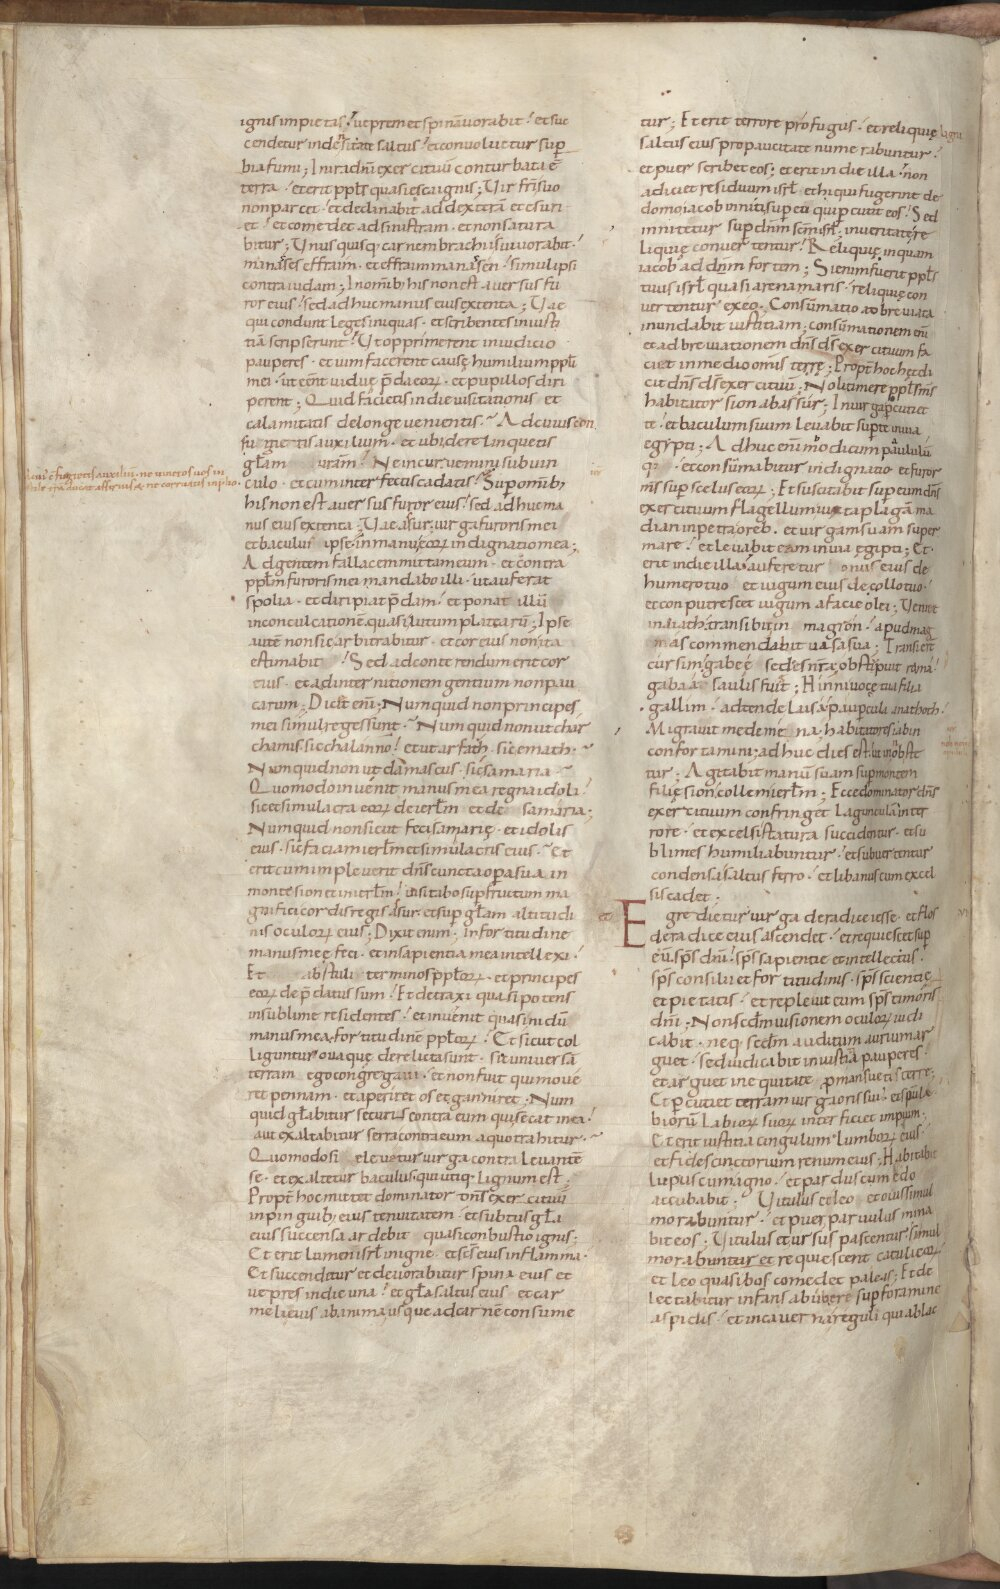 ignis impietas? uepremet spinā uorabit? et suc
cendetur in dēsitate saltus? et conuoluetur sup̄
bia fumi; In ira dn̄i exercituū conturbata ē
terra? et erit ppl̄s quasi esca ignis; Uir fr̄i suo
non parcet · et declinabit ad dexterā et esuri
et? et comedet ad sinistram · et non satura
bitur; Unusquisq; carnem brachii sui uorabit·
manases effraim · et effraim manasen? simul ipsi
contra iudam; In omnib; his non est auersus fu
ror eius? sed adhuc manus eius extenta; Uae
qui condunt leges iniquas · et scribentes iniusti
tiā scripserunt? Ut opprimerent in iudicio
pauperes · et uim facerent causę humilium ppl̄i
mei · ut eēnt uiduę p̄da eoꝝ · et pupillos diri
perent; Quid facietis in die uisitationis et
calamitatis de longe uenientis~ Ad cuius con
fugietis auxilium · et ubi derelinquetis
gl̄am urām? Ne incuruemini sub uin
culo · et cum interfectis cadatis~ Sup̄ omīb;
his non est auersus furor eius? sed adhuc ma
nus eius extenta; Uae asur· uirga furoris mei
et baculus ipse· in manu eoꝝ indignatio mea;
Ad gentem fallacem mittam eum · et contra
ppl̄m furoris mei mandabo illi · ut auferat
spolia · et diripiat p̄dam? et ponat illū
in conculcationē quasi lutum platearū; Ipse
autē non sic arbitrabitur · et cor eius non ita
estimabit? Sed ad conterendum erit cor
eius · et ad internitionem gentium non pau
carum; Dicet enī; Numquid non principes
mei simul reges sunt~ Numquid non ut char
chamis sic chalanno? et ut arfath· sic emath~
Numquid non ut damascus· sic samaria~
Quomodo inuenit manus mea regna idoli
sic et simulacra eoꝝ de ierl̄m et de samaria;
Numquid non sicut feci samarię · et idolis
eius · sic faciam ierl̄m et simulacris eius~ Et
erit cum impleuerit dn̄s cuncta opa sua in
monte sion et in ierl̄m? uisitabo sup fructum ma
gnifici cordis regis asur· et sup gl̄am altitudi
nis oculoꝝ eius; Dixit enim; In fortitudine
manus meę feci · et in sapientia mea intellexi?
Et abstuli terminos ppl̄oꝝ · et principes
eoꝝ dep̄datus sum? Et detraxi quasi potens
in sublime residentes? et inuenit quasi nidū
manus mea· fortitudinē ppl̄oꝝ? Et sicut col
liguntur oua quę derelicta sunt· sic uniuersā
terram ego congregaui · et non fuit qui moue
ret pennam · et aperiret os et ganniret; Num
quid gl̄abitur securis contra eum qui secat in ea?
aut exaltabitur serra contra eum a quo trahitur~
Quomodo si eleuetur uirga contra leuantē
se · et exaltetur baculus· qui utiq; lignum est;
Propt̄ hoc mittet dominator dn̄s exercituū
in pinguib; eius tenuitatem? et subtus gl̄a
eius succensa ardebit quasi conbustio ignis;
Et erit lumen isrl̄ in igne · et sc̄s eius in flamma·
Et succendetur et deuorabitur spina eius et
uepres in die una? et gl̄a saltus eius et car
meli eius ab anima usque ad carnē consume
tur; Et erit terrore profugus? et reliquię ligni
saltus eius pro paucitate numerabuntur?
et puer scribet eos; et erit in die illa · non
adiciet residuum isrl̄ et hi qui fugerint de
domo iacob inniti sup eū qui percutit eos? Sed
innitetur sup dn̄m sc̄m isrl̄· in ueritate; re
liquię conuertentur? Reliquię inquam
iacob ad dn̄m fortem; Si enim fuerit ppl̄s
tuus isrl̄ quasi arena maris · reliquię con
uertentur ex eo; Consūmatio abbreuiata
inundabit iustitiam; consūmationem enī
et adbreuiationem dn̄s ds̄ exercituum fa
ciet in medio omīs terrę; Propt̄ hoc hęc di
cit dn̄s ds̄ exercituū; Noli timere ppl̄s m̄s
habitator sion ab assur; In uirga p̄cutiet
te · et baculum suum leuabit sup te in uia
egypti; Adhuc enī modicum paululū
q; · et consūmabitur indignatio et furor
m̄s sup scelus eoꝝ; Et suscitabit sup eum dn̄s
exercituum flagellum iuxta plagā ma
dian in petra oreb · et uirgam suam super
mare? et leuabit eam in uia egipti; Et
erit in die illa· auferetur onus eius de
humero tuo et iugum eius de collo tuo·
et conputrescet iugum a facie olei; Ueniet
in aiath; transibit in magron? apud mag
mas commendabit uasa sua; Transier̄t
cursim; gabee sedes nr̄a; obstipuit rama?
gabaa saulis fugit; Hinni uoce tua filia
gallim? adtende laisa; paupercula anathoth·
Migrauit medemena; habitatores iabin
confortamini; adhuc dies est· ut in nobe ste
tur; Agitabit manū suam sup montem
filię sion; collem ierl̄m; Ecce dominator dn̄s
exercituum confringet lagunculā in ter
rore · et excelsi statura succidentur · et su
blimes humiliabuntur · et subuertentur
condensa saltus ferro? et libanus cum excel
sis cadet;
Et gredietur uirga de radice iesse · et flos
de radice eius ascendet · et requiescet sup
eū sp̄s dn̄i? sp̄s sapientię et intellectus·
sp̄s consilii et fortitudinis · sp̄s scientię
et pietatis · et replebit eum sp̄s timoris
dn̄i; Non scd̄m uisionem oculoꝝ iudi
cabit · neq; scd̄m auditum aurium ar
guet · sed iudicabit in iustitia pauperes ·
et arguet in equitate p̄ mansuetis terre;
Et p̄cutiet terram uirga oris sui? et sp̄u la
bioꝝ suoꝝ interficiet impium·
Et erit iustitia cingulum lumboꝝ eius·
et fides cinctorium renum eius; Habitabit
lupus cum agno? et pardus cum edo
accubabit; Uitulus et leo et ouis simul
morabuntur? et puer paruulus mina
bit eos; Uitulus et ursus pascentur; simul
morabuntur et requiescent catuli eoꝝ·
et leo quasi bos comedet paleas; Et de
lectabitur infans ab ubere sup foramine
aspidis? et in cauerna reguli qui ablac